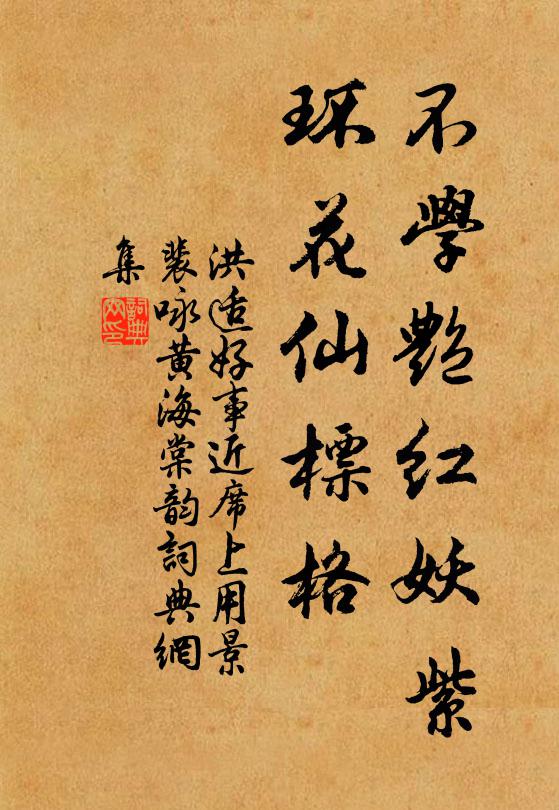 不學艷紅妖紫
琛花仙標格
洪适好事近席上用景
裴咏黄海棠韵詞典網
集
詞典